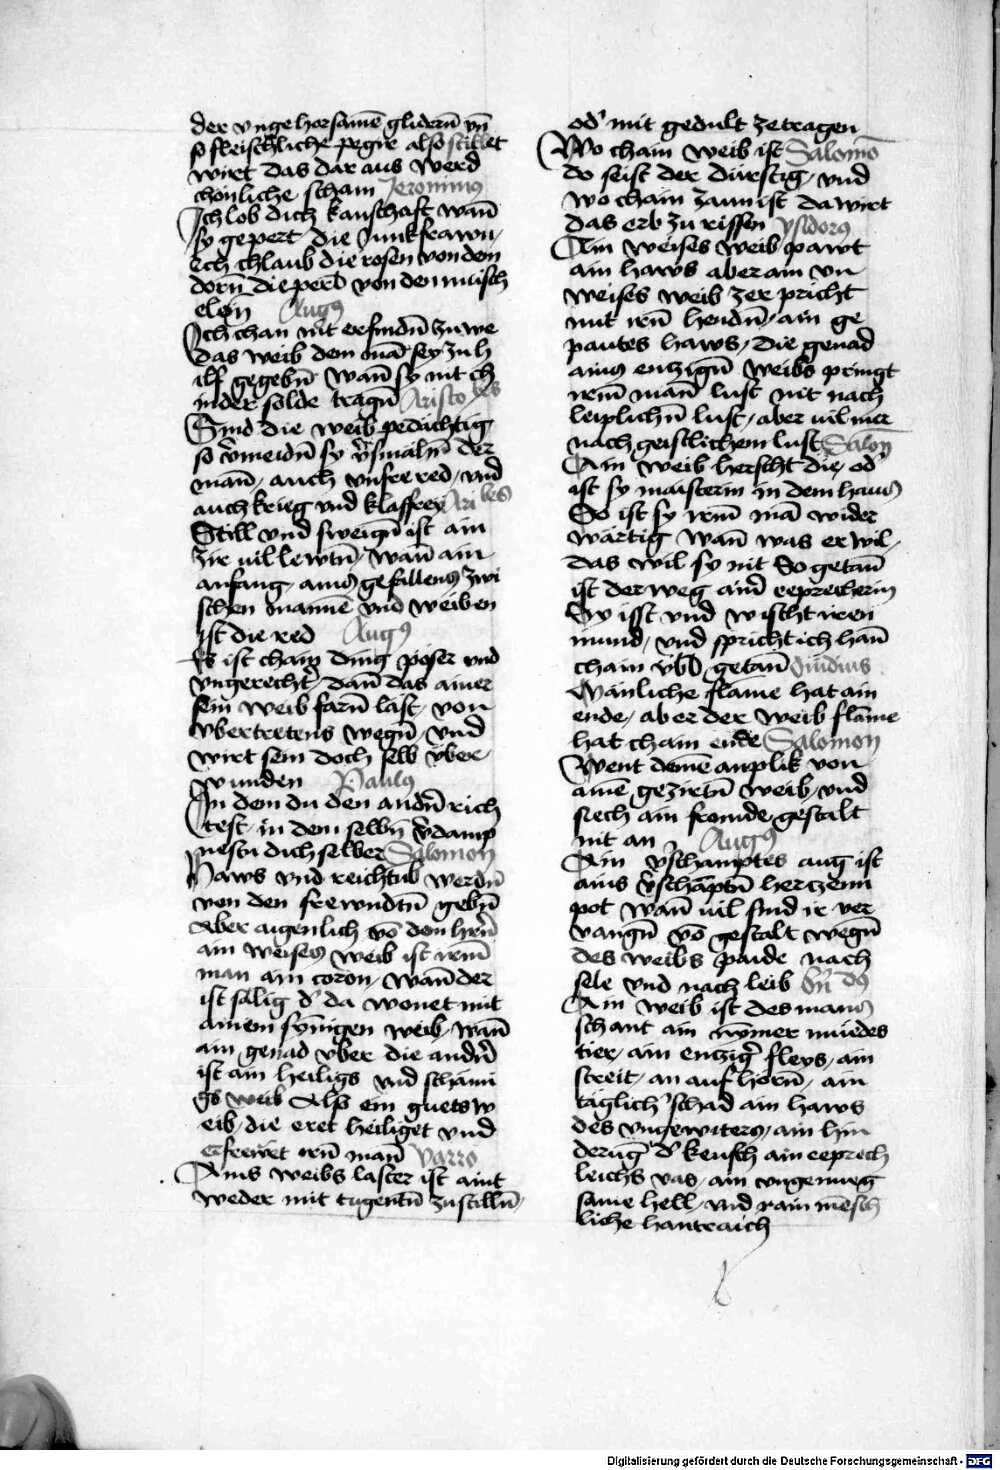 der vngehorsamē glidern̄ vn̄
so fleischliche pegir also stillet
wirt das dar aus werd
chönliche scham Jeronimus
Ich lob dich kauschaft wan̄
sy gepert die Junkfrawn
Ich chlaub die rosen von dem
dorn̄ die perl̄ von den müsch
elein Augꝰ
Ich chan nit erfindn̄ zu we
das weib dem mā sey zu h
ilf gegebn̄ wan̄ sy nit ch
inder solde tragn̄ Aristotiles
Sind die weib pedächtig
so v̄meidn̄ sy v̄smähn̄ der
mann, auch vnfrered, vnd
auch krieg vnd klaffrey Aristotiles
Still vnd sweign̄ ist ain
zir vil lewtn̄, wan̄ ain
anfang ains gefallens zwi
schen mannē vnd weiben
ist die red Augꝰ
Es ist chain ding pöser vnd
vngerecht̄ dan̄ das ainer
sein weib farn̄ läst, von
vbertretens wegn̄, vnd
wirt sein doch selb vber
wunden Paulꝰ
In dem du den andn̄ rich
test, in dem selbn̄ v̄damp
nestu dich selber Salomon
Haws vnd reichtub werdn̄
von den frewndtn̄ gebn̄
Aber aigenlich vō dem hrn̄
ain weises weib ist irem̄
man ain coron, wan̄ der
ist sälig d' da wonet mit
ainem synnigen weib, wan̄
ain genad vber die andn̄
ist ain heiligs vnd schämi
gs weib Also ein guets w
eib, die eret heiliget vnd
erfrewet irn̄ man̄ Varro
Ains weibs laster ist aint
weder mit tugentn̄ zustilln̄
od' mit gedult zetragen
Wo chain weib ist Salomō
do seist der dürstig, vnd
wo chain zaun ist da wirt
das erb zu rissen ysidorꝰ
Ain weises weib pawt
ain haws aber ain vn
weises weib zer pricht
mit irn̄ hendn̄, ain ge
pautes haws, die genad
ains enzign̄ weibs pringt
irem̄ man̄ lust nit nach
leiplichn̄ lust, aber vil mer
nach geistlichem lust Salon̄
Ain weib herscht die, od'
ist sy maisterin in dem haus
So ist sy irem̄ mā wider
wärtig wan̄ was er wil,
das wil sy nit So getan̄
ist der weg ain̄ eeprecherin
Sy isst vnd wischt iren
mund, vnd spricht ich han̄
chain v̈bl̄ getan̄ Ouidius
Mänliche flame hat ain
ende, aber der weib flame
hat chain ende Salomon
Went deinē anplik von
ainē gezirtn̄ weib, vnd
siech ain fromde gestalt
nit an Augꝰ
Ain v̄schamptes aug ist
ains v̄schāptn̄ hertzenn
pot wan̄ vil sind ir ver
vangn̄ vō gestalt wegn̄
des weibs paide nach
sele vnd nach leib
Ain weib ist des mans
schant ain nymer müedes
tier, ain enzig' fleys, ain
streit, an auf hörn̄, ain
täglich' schad ain haws
des vngewiters, ain hin
derūg d' keusch ain eeprech
leichs vas, ain vngenueg
same hell, vnd
liche hantraich
Digitalisierung gefördert durch die Deutsche Forschungsgemeinschaft - DFG